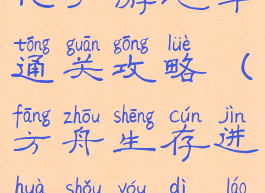 tōng guān gōng lüè
通关攻略（
fāng zhōu shēng cún jìn
方舟生存进
huà shǒu yóu dì láo